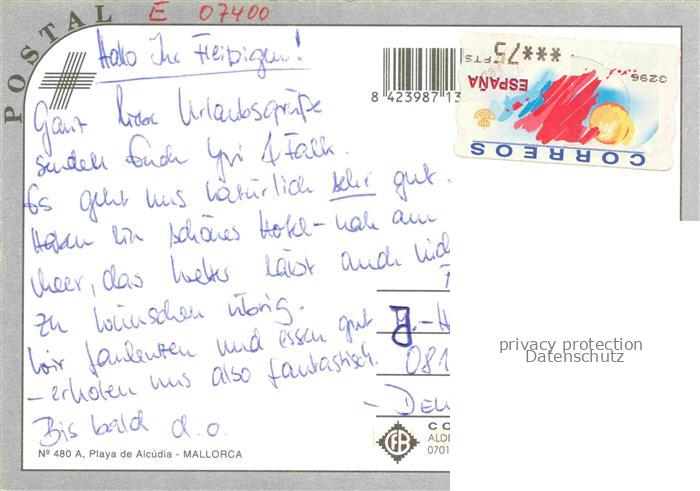 E 07400
POSTAL
Hallo Ihr Fleißigen!
Ganz liebe Urlaubsgrüße
senden Euch Yvi & Falk.
Es geht uns natürlich sehr gut.
Haben ein schönes Hotel - nah am
Meer, das Wetter lässt auch nich
zu wünschen übrig.
Wir faulenzen und essen gut
- erholen uns also fantastisch.
Bis bald d. o.
Nº 480 A, Playa de Alcúdia - MALLORCA
8 423987 13
***75
PTS
3296
ESPAÑA
CORREOS
081
- DEU
CO
ALDE
0701
privacy protection
Datenschutz